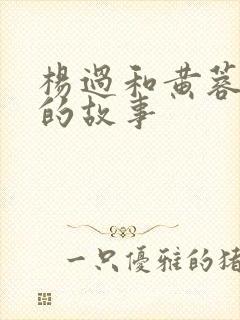 楊過和黃蓉
的故事
一只優雅的豬